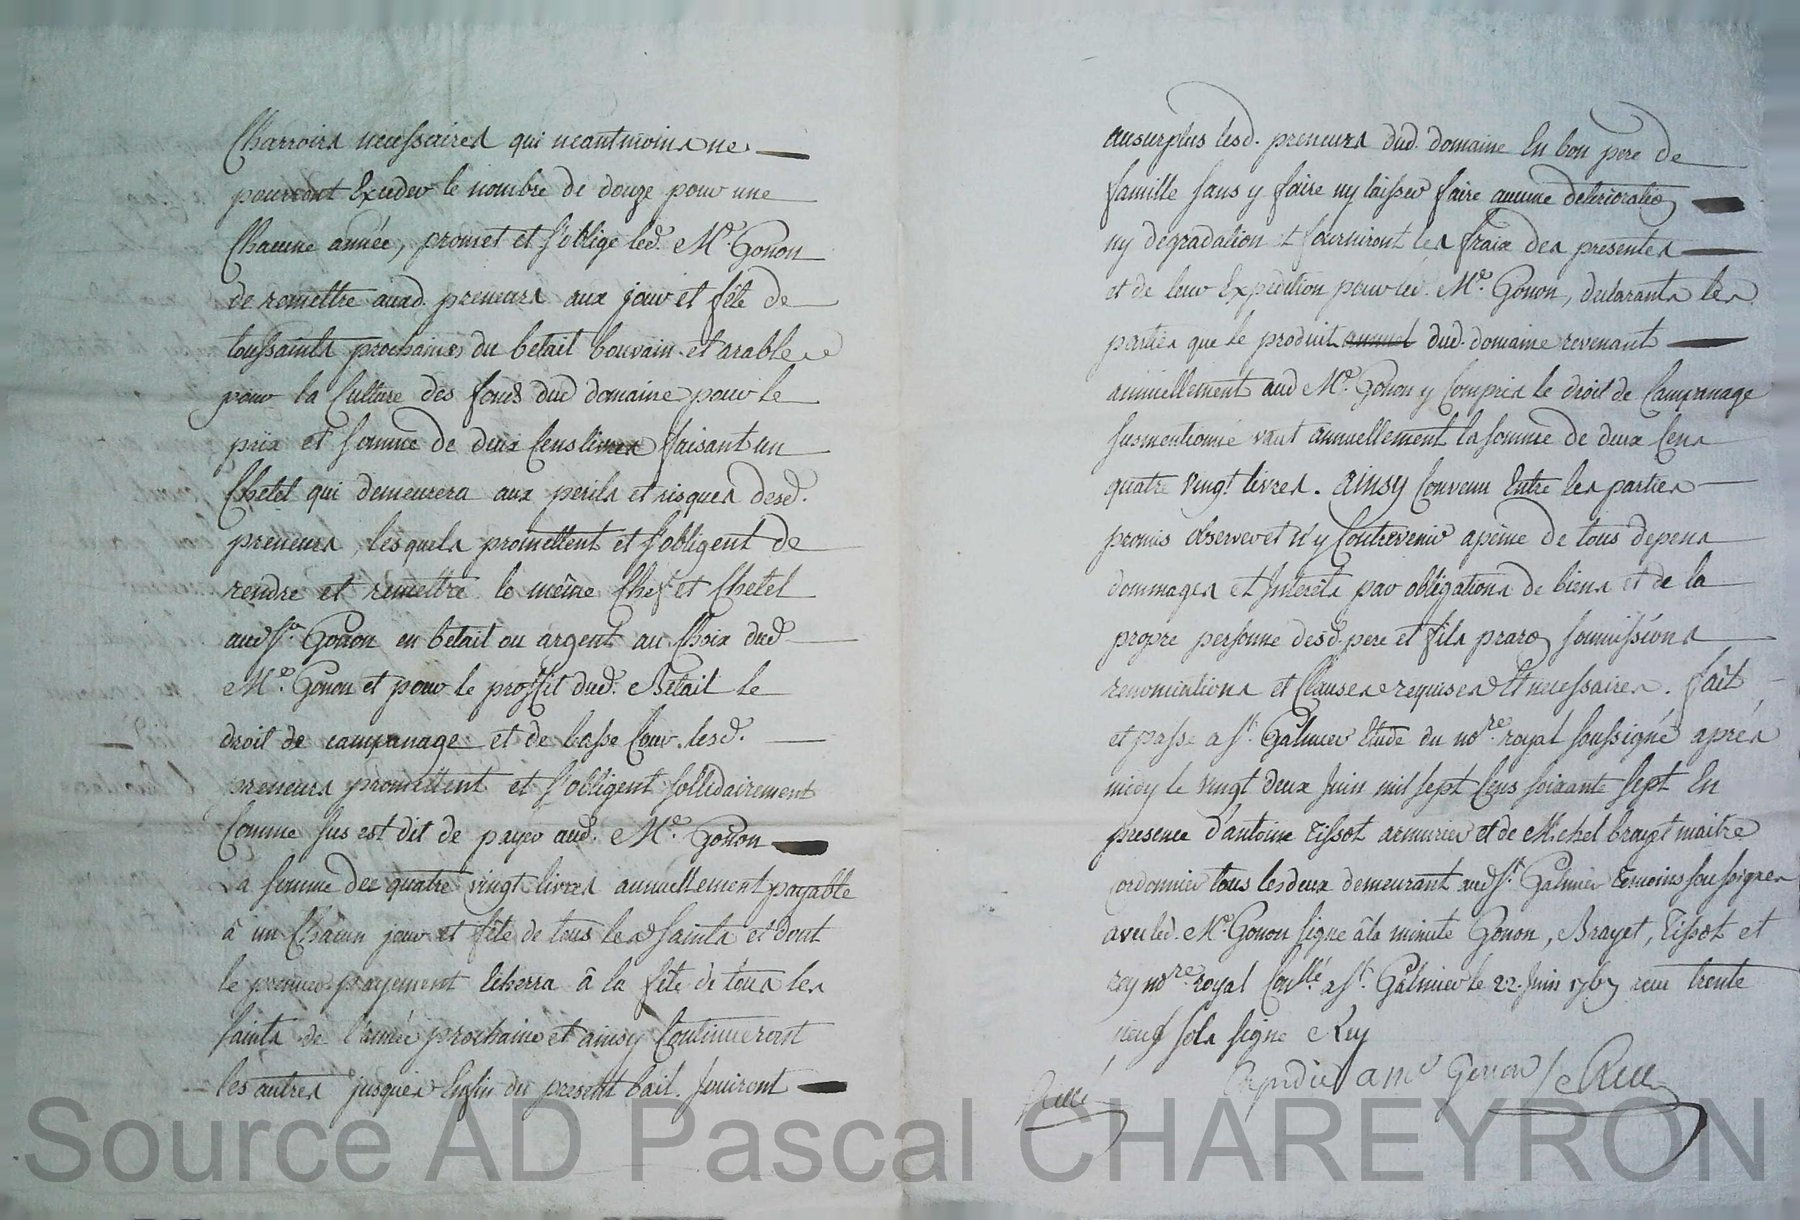 Charroirs necessaires qui neantmoins ne
pourront Exceder le nombre de douze pour une
Chacune année, promet et s'oblige led. Me. Gonon
de remettre auxd. preneurs aux jour et fête de
toussaints prochaines du betail bouvain et arable
pour la Culture des fonds dud domaine pour le
prix et somme de deux Cens livres faisant un
Chetel qui demeurera aux perils et risques desd.
preneurs, lesquels promettent et s'obligent de
rendre et remettre le même Chef et Chetel
aud Sr. Gonon en betail ou argent au Choix dud
Me. Gonon et pour le proffit dud. Betail le
droit de campanage et de basse Cour. lesd.
preneurs promettent et s'obligent sollidairement
Comme sus est dit de payer aud. Me. Gonon
La somme de quatre vingt livres annuellement payable
à un Chacun jour et fête de tous les Saints et dont
le premier payement Echerra â la fête de tous les
saints de l'année prochaine et ainsy Continueront
les autres jusques Enfin du present bail. Jouiront
ausurplus lesd. preneurs dud. domaine En bon pere de
famille sans y faire ny laisser faire aucune deterioration
ny degradation & fourniront les fraix des presentes
et de leur Expedition pour led. Me. Gonon, declarants les
parties que le produit annuel dud. domaine revenant
annuellement aud Me. Gonon y Compris le droit de Campanage
susmentionné vaut annuellement la somme de deux Cens
quatre vingt livres. Ainsy Convenu Entre les parties
promis observer et n'y Contrevenir apeine de tous depens
dommages et Interêts par obligations de biens et de la
propre personne desd. pere et fils soumissions
renonciations et Clauses requises Et necessaires. fait
et passé a St. Galmier Etude du nore. royal soussigné aprés
midy le vingt deux Juin mil sept Cens soixante sept En
presence d'antoine Tissot armurier et de Michel brayet maitre
cordonnier tous les deux demeurant aud St. Galmier temoins soussignes
avec led. Me. Gonon signé âla minute Gonon, Brayet, Tissot et
rey nore. royal Conllé a St. Galmier le 22. Juin 1767 reçu trente
neuf sols signé Rey
Expedié a me Gonon
Source AD Pascal CHAREYRON